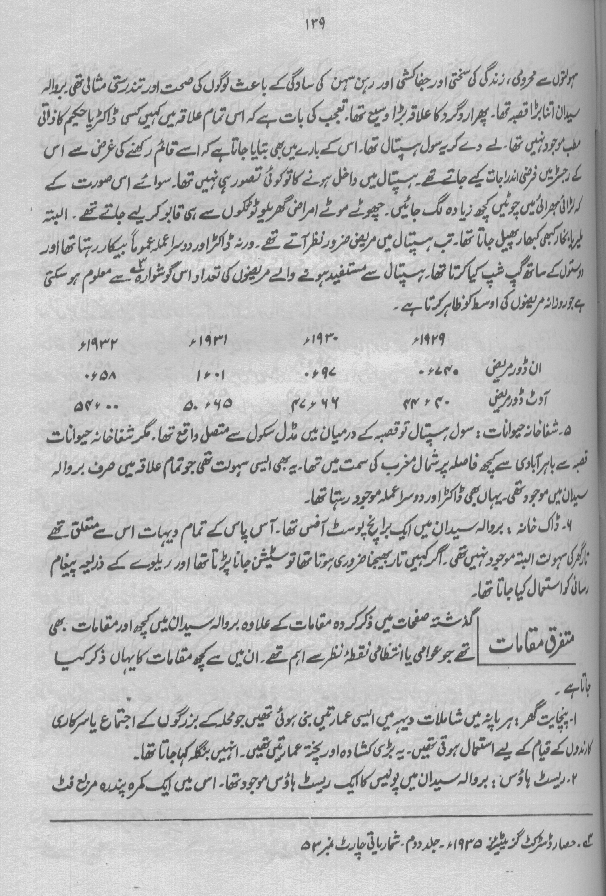 ۱۳۹
سہولتوں سے محرومی، زندگی کی سختی اور جفاکشی اور رہن سہن کی سادگی کے باعث لوگوں کی صحت اور تندرستی مثالی تھی بروالہ
سیدان اتنا بڑا قصبہ تھا۔ پھر اردگرد کا علاقہ بڑا وسیع تھا۔ تعجب کی بات ہے کہ اس تمام علاقہ میں کہیں کسی ڈاکٹر یا حکیم کا ذاتی
مطب موجود نہیں تھا۔ لے دے کر یہ سول ہسپتال تھا۔ اس کے بارے میں بھی بتایا جاتا ہے کہ اسے قائم رکھنے کی غرض سے اس
کے رجسٹر میں فرضی اندراجات کیے جاتے تھے۔ ہسپتال میں داخل ہونے کا تو کوئی تصور ہی نہیں تھا۔ سوائے اس صورت کے
کہ لڑائی بھڑائی میں چوٹیں کچھ زیادہ لگ جائیں۔ چھوٹے موٹے امراض گھریلو ٹوٹکوں سے ہی قابو کر لیے جاتے تھے۔ البتہ
ملیریا بخار کبھی کبھار پھیل جاتا تھا۔ تب ہسپتال میں مریض ضرور نظر آتے تھے۔ ورنہ ڈاکٹر اور دوسرا عملہ عموماً بیکار رہتا تھا اور
دوستوں کے ساتھ گپ شپ کیا کرتا تھا۔ ہسپتال سے مستفید ہونے والے مریضوں کی تعداد اس گوشوارہ سے معلوم ہو سکتی
ہے جو روزانہ مریضوں کی اوسط کو ظاہر کرتا ہے۔
۱۹۲۹ء ۱۹۳۰ء ۱۹۳۱ء ۱۹۳۲ء
ان ڈور مریض ۰ء۷۴ ۰ء۹۷ ۱ء۰۱ ۰ء۵۸
آوٹ ڈور مریض ۴۴ء۴۰ ۴۷ء۶۶ ۵۰ء۶۵ ۵۴ء۰۰
۵۔ شفاخانہ حیوانات: سول ہسپتال تو قصبہ کے درمیان میں مڈل سکول سے متصل واقع تھا۔ مگر شفاخانہ حیوانات
قصبہ سے باہر آبادی سے کچھ فاصلہ پر شمال مغرب کی سمت میں تھا۔ یہ بھی ایسی سہولت تھی جو تمام علاقہ میں صرف بروالہ
سیدان میں موجود تھی۔ یہاں بھی ڈاکٹر اور دوسرا عملہ موجود رہتا تھا۔
۶۔ ڈاک خانہ: بروالہ سیدان میں ایک برانچ پوسٹ آفس تھا۔ آس پاس کے تمام دیہات اس سے متعلق تھے
تارگھر کی سہولت البتہ موجود نہیں تھی۔ اگر کہیں تار بھیجنا ضروری ہوتا تھا تو سٹیشن جانا پڑتا تھا اور ریلوے کے ذریعہ پیغام
رسانی کو استعمال کیا جاتا تھا۔
متفرق مقامات
گذشتہ صفحات میں ذکر کردہ مقامات کے علاوہ بروالہ سیدان میں کچھ اور مقامات بھی
تھے جو عوامی یا انتظامی نقطۂ نظر سے اہم تھے۔ ان میں سے کچھ مقامات کا یہاں ذکر کیا
جاتا ہے۔
۱۔ پنچایت گھر: ہر پانہ میں شاملات دیہہ میں ایسی عمارتیں بنی ہوئی تھیں جو محلہ کے بزرگوں کے اجتماع یا سرکاری
کارندوں کے قیام کے لیے استعمال ہوتی تھیں۔ یہ بڑی کشادہ اور پختہ عمارتیں تھیں۔ انہیں بنگلہ کہا جاتا تھا۔
۲۔ ریسٹ ہاؤس: بروالہ سیدان میں پولیس کا ایک ریسٹ ہاؤس موجود تھا۔ اس میں ایک کمرہ پندرہ مربع فٹ
حصار ڈسٹرکٹ گزیٹیئر ۱۹۳۵ء۔ جلد دوم۔ شماریاتی چارٹ نمبر ۵۳